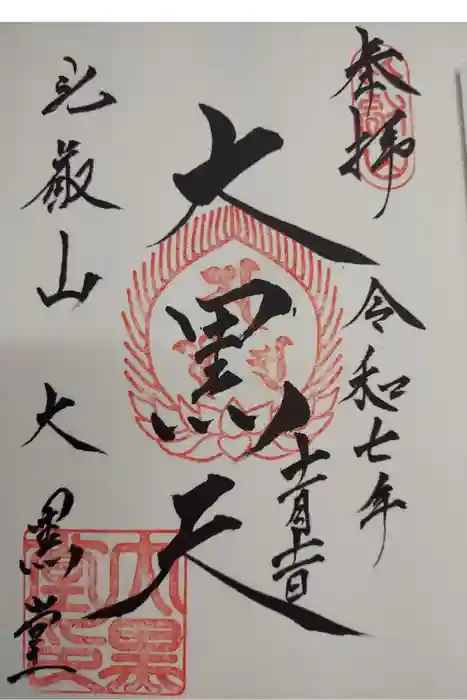 奉拝
令和七年
十一月十一日
大黒天
比叡山 大黒堂
大黑
堂印